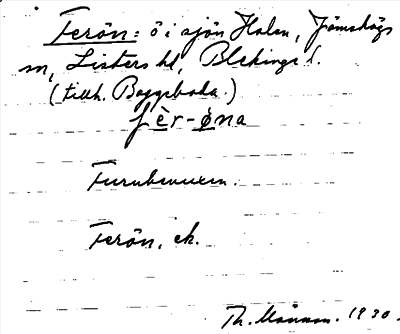 Ferön: ö i sjön Halen, Jämshögs
sn, Listers hd, Blekinge l.
(tillh. Boggeboda.)
fèr-øna
Furubevuxen.
Ferön, ek.
Th. Månsson. 1930.